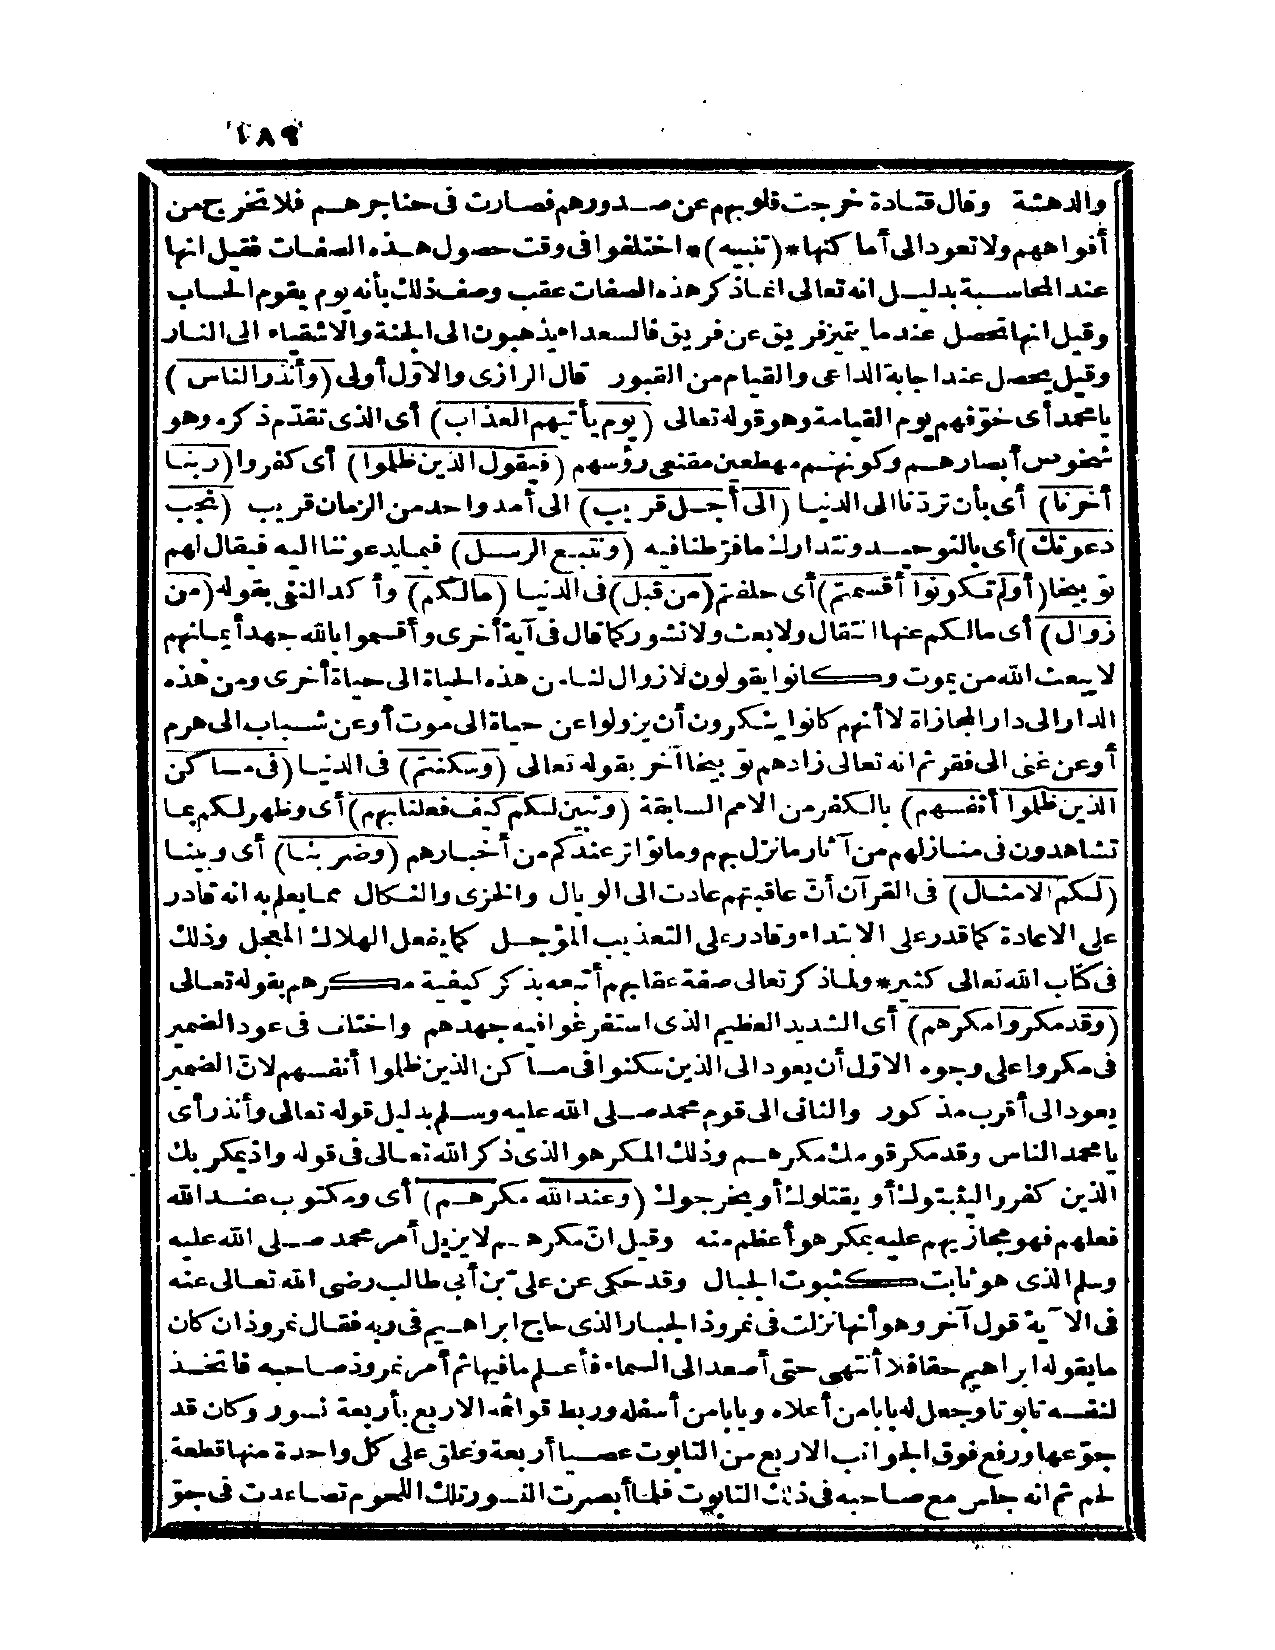 ١٨٩
والدهشة وقال قتادة خرجت قلوبهم عن صدورهم فصارت فى حناجرهم فلا تخرج من
أفواههم ولا تعود الى أما كنها *(تنبيه)* اختلفوا فى وقت حصول هذه الصفات فقيل انها
عند المحاسبة بدليل انه تعالى انماذ كر هذه الصفات عقب وصف ذلك بأنه يوم يقوم الحساب
وقيل انها تحصل عندما يتميز فريق عن فريق فالسعداء يذهبون الى الجنة والاشقياء الى النار
وقيل يحصل عند اجابة الداعى والقيام من القبور قال الرازى والاوّل أولى (وأنذر الناس)
يا محمد أى خوّفهم يوم القيامة وهو قوله تعالى (يوم يأتيهم العذاب) أى الذى تقدّم ذكره وهو
شخوص أبصارهم وكونهم مهطعين مقنعى رؤسهم (فيقول الذين ظلموا) أى كفروا (ربنا
أخرنا) أى بأن تردّنا الى الدنيا (الى أجل قريب) الى أمد واحد من الزمان قريب (نجب
دعوتك) أى بالتوحيد ونتدارك ما فرّطنا فيه (ونتبع الرسل) فيما يدعوننا اليه فيقال لهم
توبيخا (أولم تكونوا أقسمتم) أى حلفتم (من قبل) فى الدنيا (مالكم) وأ كد النفى بقوله (من
زوال) أى مالكم عنها انتقال ولا بعث ولا نشور كما قال فى آية أخرى وأقسموا بالله جهد أيمانهم
لا يبعث الله من يموت وكانوا يقولون لا زوال لنا من هذه الحياة الى حياة أخرى ومن هذه
الدار الى دار المجازاة لا أنهم كانوا ينكرون أن يزولوا عن حياة الى موت أو عن شباب الى هرم
أو عن غنى الى فقر ثم انه تعالى زادهم توبيخا آخر بقوله تعالى (وسكنتم) فى الدنيا (فى مسا كن
الذين ظلموا أنفسهم) بالكفر من الامم السابقة (وتبين لكم كيف فعلنا بهم) أى وظهر لكم بما
تشاهدون فى منازلهم من آثار ما نزل بهم وما تواتر عندكم من أخبارهم (وضربنا) أى وبينا
(لكم الامثال) فى القرآن أنّ عاقبتهم عادت الى الوبال والخزى والنكال مما يعلم به انه قادر
على الاعادة كما قدر على الابتداء وقادر على التعذيب المؤجل كما يفعل الهلاك المعجل وذلك
فى كتاب الله تعالى كثير* ولماذ كر تعالى صفة عقابهم أتبعه بذكر كيفية مكرهم بقوله تعالى
(وقد مكروا مكرهم) أى الشديد العظيم الذى استفرغوا فيه جهدهم واختلف فى عود الضمير
فى مكروا على وجوه الاوّل أن يعود الى الذين سكنوا فى مسا كن الذين ظلموا أنفسهم لانّ الضمير
يعود الى أقرب مذكور والثانى الى قوم محمد صلى الله عليه وسلم بدليل قوله تعالى وأنذر أى
يا محمد الناس وقد مكر قومك مكرهم وذلك المكر هو الذى ذكر الله تعالى فى قوله واذ يمكر بك
الذين كفروا ليثبتوك أو يقتلوك أو يخرجوك (وعند الله مكرهم) أى ومكتوب عند الله
فعلهم فهو مجازيهم عليه بمكر هو أعظم منه وقيل انّ مكرهم لا يزيل أمر محمد صلى الله عليه
وسلم الذى هو ثابت كثبوت الجبال وقد حكى عن علىّ بن أبى طالب رضى الله تعالى عنه
فى الآية قول آخر وهو أنها نزلت فى نمروذ الجبار الذى حاج ابراهيم فى ربه فقال نمروذ ان كان
ما يقوله ابراهيم حقا فلا أنتهى حتى أصعد الى السماء فأعلم ما فيها ثم أمر نمروذ صاحبه فاتخذ
لنفسه تابوتا وجعل له بابا من أعلاه وبابا من أسفله وربط قوائمه الاربع بأربعة نسور وكان قد
جوّعها ورفع فوق الجوانب الاربع من التابوت عصيا أربعة وعلق على كل واحدة منها قطعة
لحم ثم انه جلس مع صاحبه فى ذلك التابوت فلما أبصرت النسور تلك اللحوم تصاعدت فى جوّ